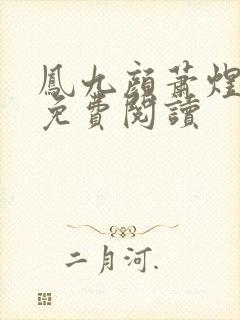 鳳九顔蕭煌
免費閱讀
二月河.